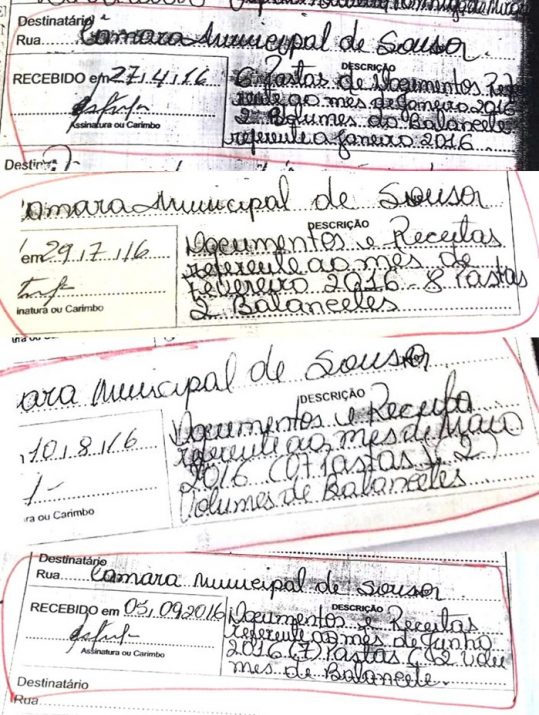 Destinatário
Rua Câmara Municipal de Sousa
RECEBIDO em 27,4,16
DESCRIÇÃO
6 Pastas de Documentos Refe
rente ao mes de Janeiro 2016
2 Volumes do Balancete
referente a Janeiro 2016
Assinatura ou Carimbo
amara Municipal de Sousa
DESCRIÇÃO
em 29,7,16
Documentos e Receitas
referente ao mes de
Fevereiro 2016 - 8 Pastas
2 Balancetes
inatura ou Carimbo
ara Municipal de Sousa
DESCRIÇÃO
10,8,16
Documentos e Receita
referente ao mes de Maio
2016 (07 Pastas) (2)
Volumes de Balancetes
ra ou Carimbo
Destinatário
Rua Câmara Municipal de Sousa
RECEBIDO em 05,09,2016
DESCRIÇÃO
Documentos e Receitas
Referente ao mes de Junho
2016 (7) Pastas (2 volu
mes de Balancete
Assinatura ou Carimbo
Destinatário
Rua